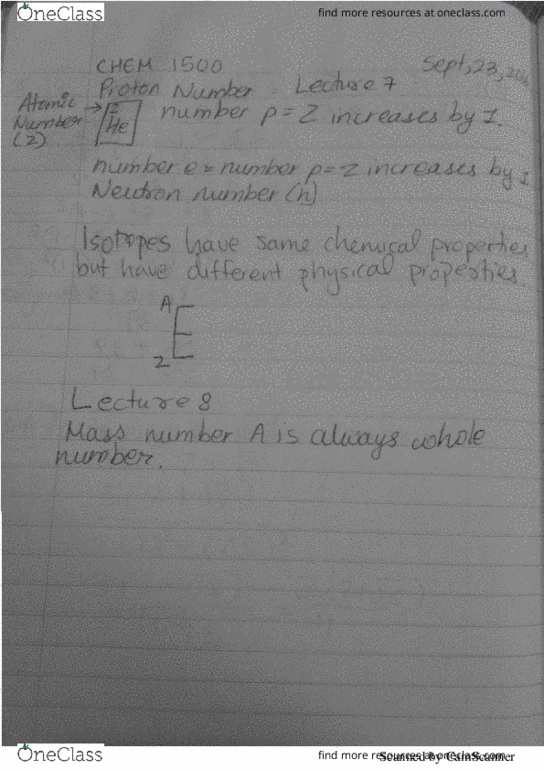 OneClass
find more resources at oneclass.com
CHEM 1500
Sept, 23,
Proton Number Lecture 7
Atomic Number (Z) → 2 He number p = Z increases by 1.
number e = number p = z increases by 1
Neutron number (n)
Isotopes have same chemical properties
but have different physical properties.
A
E
Z
Lecture 8
Mass number A is always whole
number.
OneClass
find more resources at oneclass.com
Scanned by CamScanner